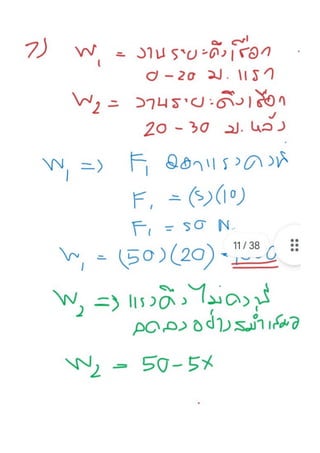 7) W₁ = งานระยะดึงเชือก
0-20 ม. แรก
W₂ = งานระยะดึงเชือก
20-30 ม. หลัง
W₁ => F₁ ออกแรงคงที่
F₁ = (5)(10)
F₁ = 50 N.
W₁ = (50)(20) =
11 / 38
W₂ => แรงดึงไม่คงที่
ลดลงอย่างสม่ำเสมอ
W₂ = 50-5x